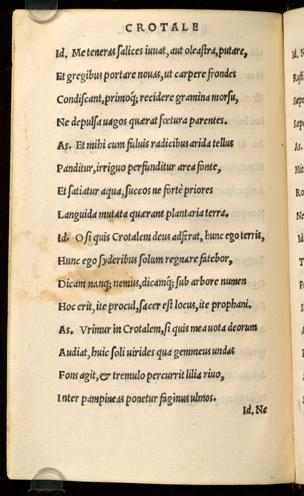 CROTALE
Id. Me teneras salices iuuat, aut oleastra, putare,
Et gregibus portare nouas, ut carpere frondes
Condiscant, primoq; recidere gramina morsu,
Ne depulsa uagos quærat fœtura parentes.
As. Et mihi cum fuluis radicibus arida tellus
Panditur, irriguo perfunditur area fonte,
Et satiatur aqua, succos ne fortè priores
Languida mutata quærant plantaria terra.
Id. O si quis Crotalem deus adferat, hunc ego terris,
Hunc ego syderibus solum regnare fatebor,
Dicam nanq; nemus, dicamq; sub arbore numen
Hoc erit, ite procul, sacer est locus, ite prophani.
As. Vrimur in Crotalem, si quis mea uota deorum
Audiat, huic soli uirides qua gemmeus undas
Fons agit, & tremulo percurrit lilia riuo,
Inter pampineas ponetur faginus ulmos.
Id. Ne